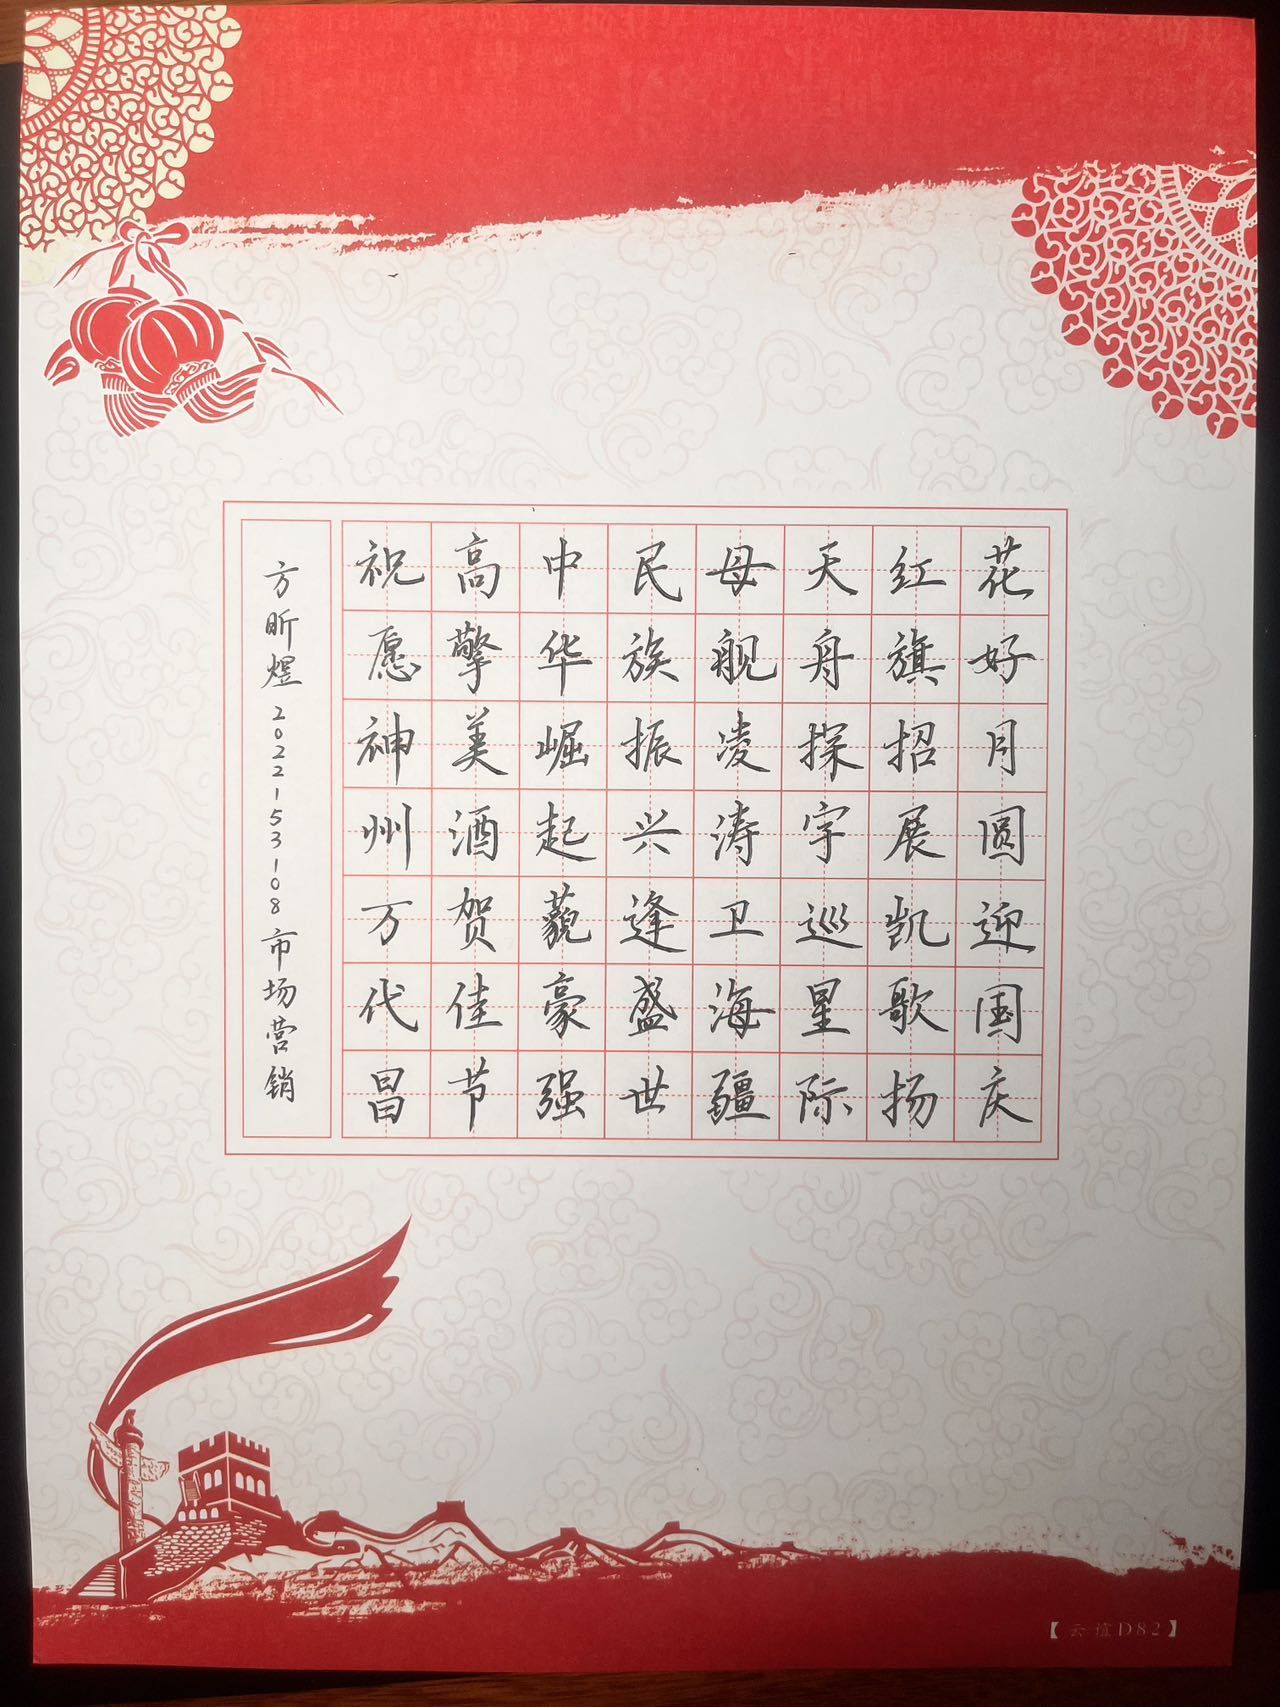 花好月圆迎国庆
红旗招展凯歌扬
天舟探宇巡星际
母舰凌涛卫海疆
民族振兴逢盛世
中华崛起藐豪强
高擎美酒贺佳节
祝愿神州万代昌
方昕煜2022153108市场营销
【云谊D82】